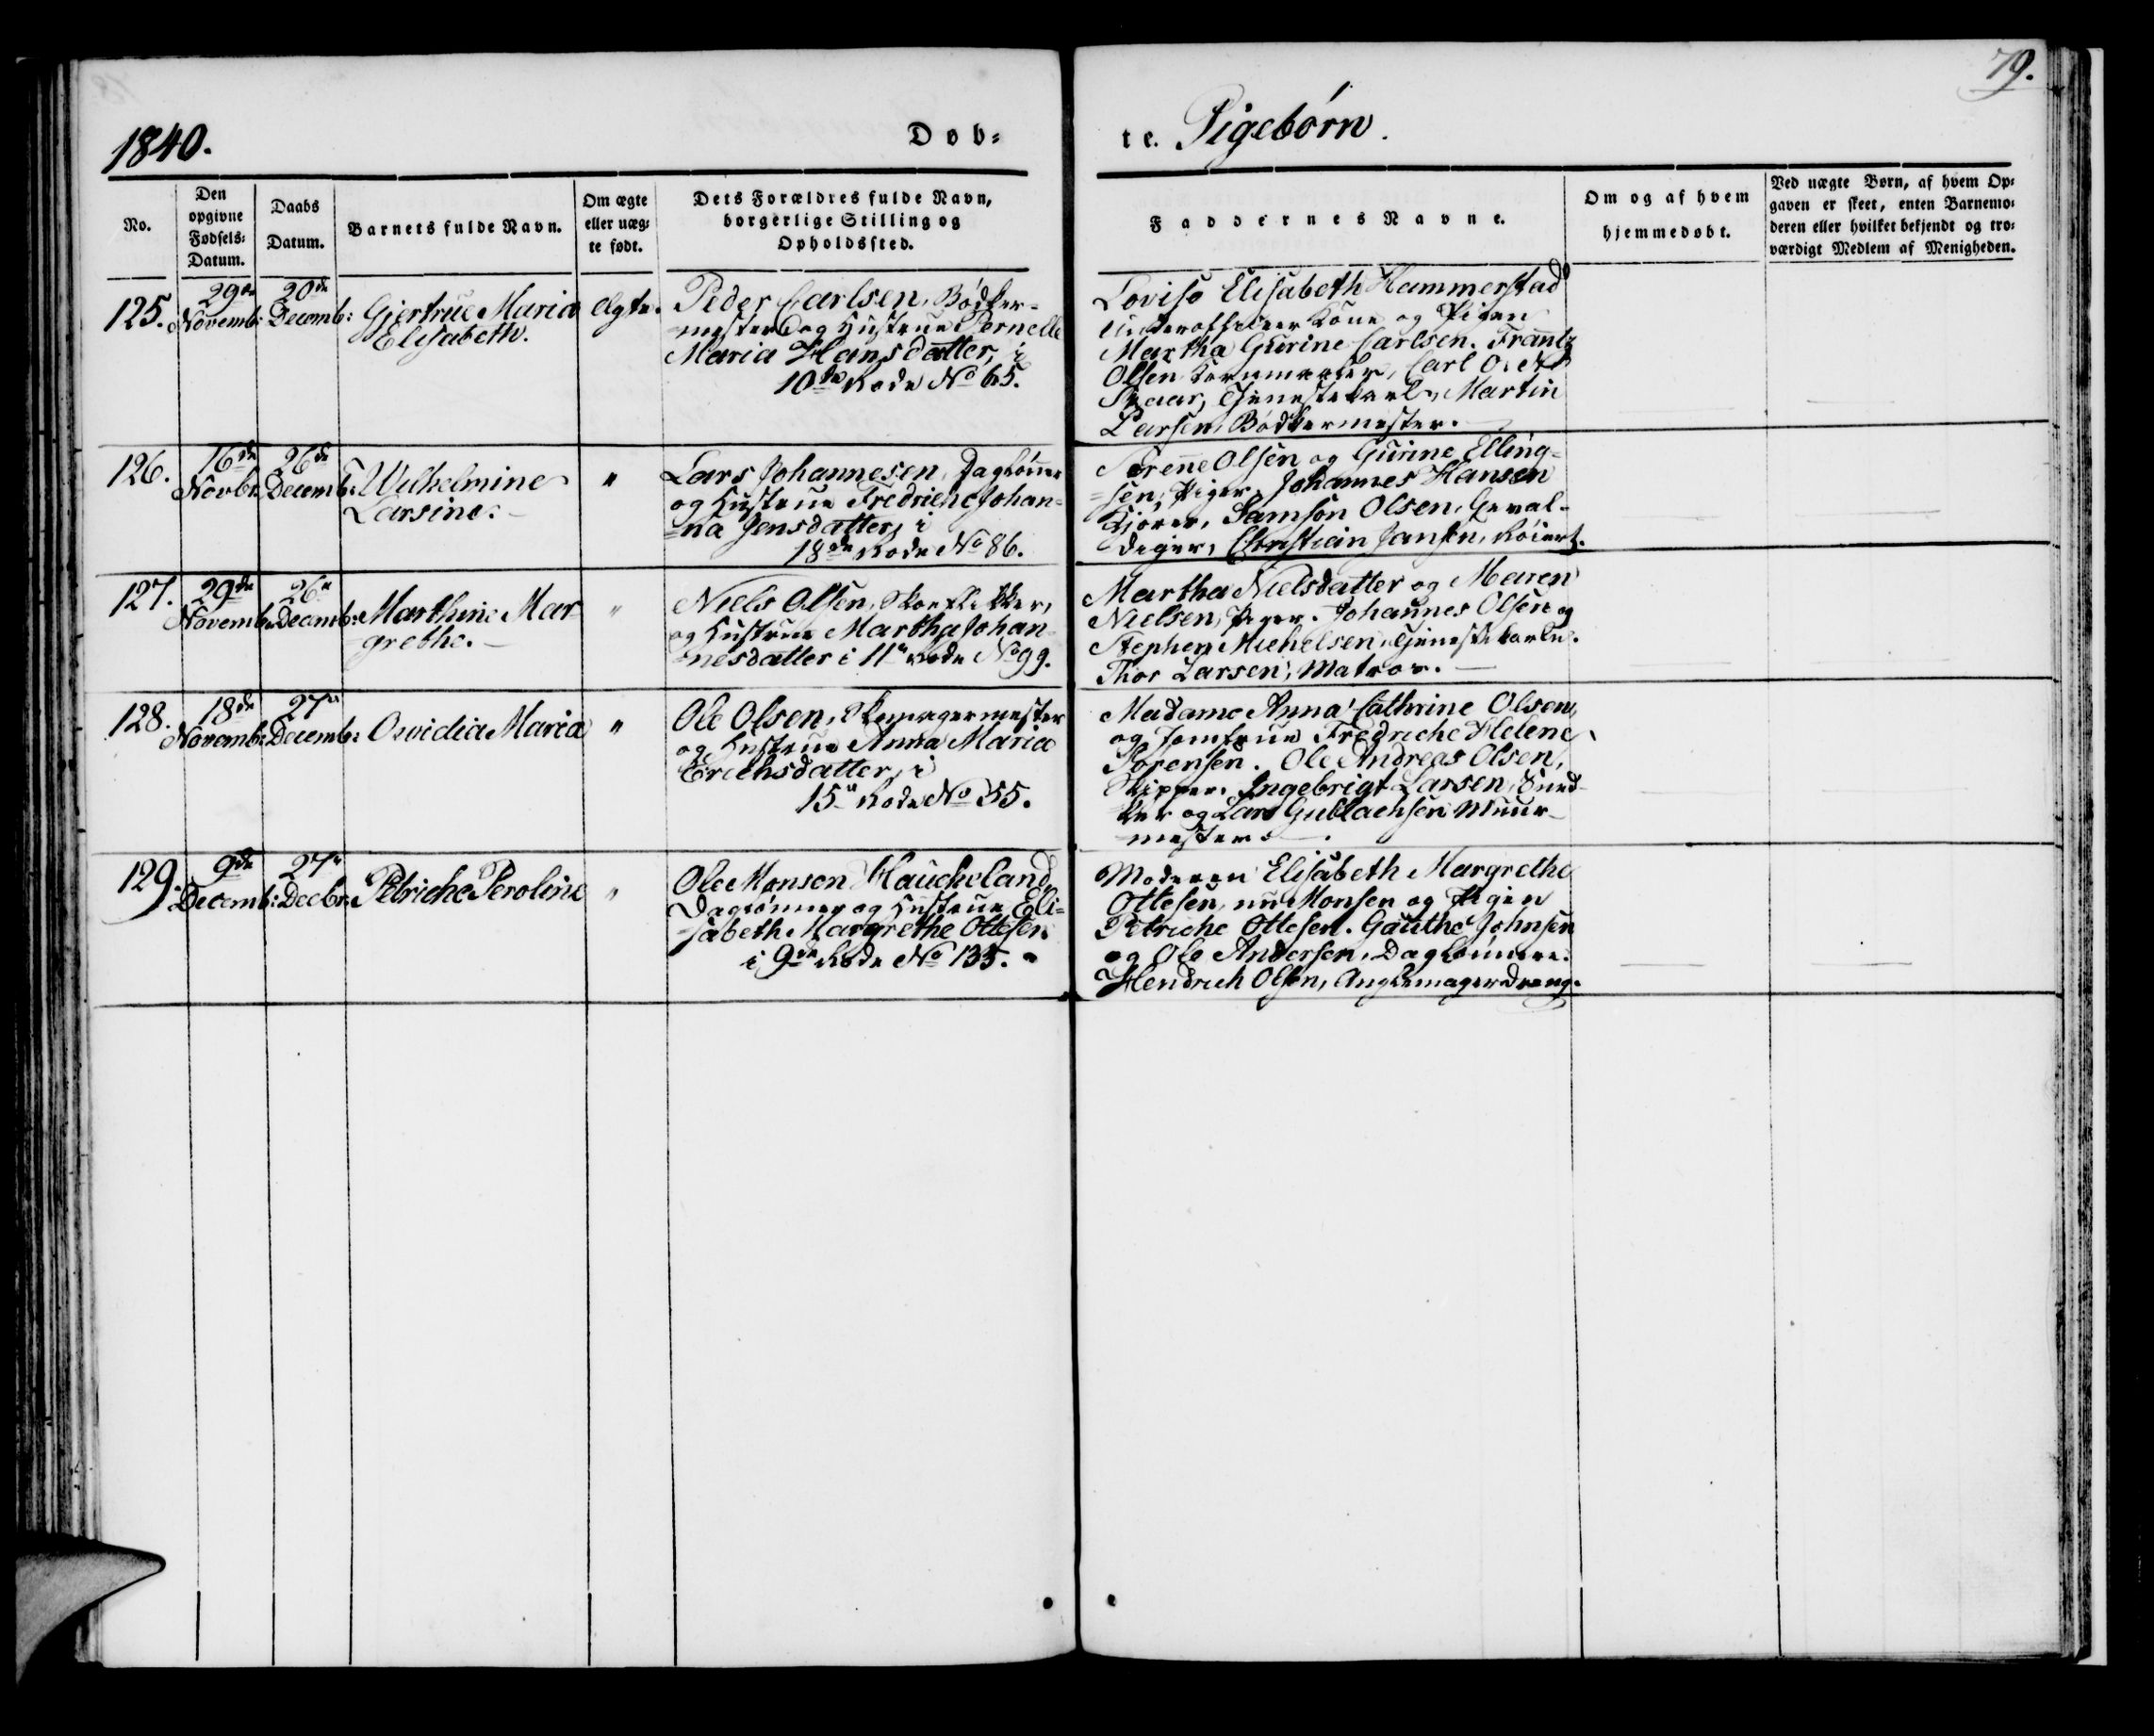 79.
1840.
Døb=
te. Pigebørn.
No.
Den
opgivne
Fødsels=
Datum.
Daabs
Datum.
Barnets fulde Navn.
Om ægte
eller uæg=
te født.
Dets Forældres fulde Navn,
borgerlige Stilling og
Opholdssted.
Faddernes Navne.
Om og af hvem
hjemmedøbt.
Ved uægte Børn, af hvem Op=
gaven er skeet, enten Barnemo=
deren eller hvilket bekjendt og tro=
værdigt Medlem af Menigheden.
125.
29de
Novemb:
20de
Decemb:
Gjertrüe Maria
Elisabeth.
Ægte.
Peder Carlsen, Bødker-
mester og Hustrue Pernelle
Maria Hansdatter, i
10de Rode No 65.
Lovise Elisabeth Hammerstad
Underofficeer Kone og Pigen
Martha Gurine Carlsen. Frantz
Olsen Kornmaaler, Carl
Skaar, Tjenestekarl, Martin
Larsen, Bødkermester.
126.
16de
Novbr.
26de
Decemb:
Wilhelmine
Larsine.
"
Lars Johannesen, Dagløner
og Hustrue Fredriche Johan=
=na Jensdatter, i
18de Rode No 86.
Serene Olsen og Gurine Elling=
=sen, Piger. Johannes Hansen
Kjører, Samson Olsen, Geval-
diger, Christian Jansen,
127.
29de
Novemb:
26de
Decemb:
Marthine Mar-
grethe.
"
Niels Olsen, Skoeflikker,
og Hustrue Martha Johan=
nesdatter i 11te Rode No 99.
Martha Nielsdatter og Maren
Nielsen, Piger. Johannes Olsen og
Stephen Michelsen, Tjenestekarle.
Thor Larsen, Matros.
128.
18de
Novemb:
27de
Decemb:
Ovidia Maria
"
Ole Olsen, Skomagermester
og Hustrue Anna Maria
Erichsdatter, i
15de Rode No 55.
Madame Anna Cathrine Olsen,
og Jomfrue Fredriche Helene
Sørensen. Ole Andreas Olsen,
Skipper. Ingebrigt Larsen, Sned-
ker og Lars Gullachsen Muur-
mester.
129.
9de
Decemb:
27de
Decbr.
Petriche Peroline
"
Ole Monsen Haucheland
Daglønner og Hustrue Eli=
=sabeth Margrethe Ottesen
i 9de Rode No 135.
Moderen Elisabeth Margrethe
Ottesen, nu Monsen og Pigen
Petriche Ottesen. Gauthe Johnsen
og Ole Andersen, Daglønnere.
Hendrich Olsen,